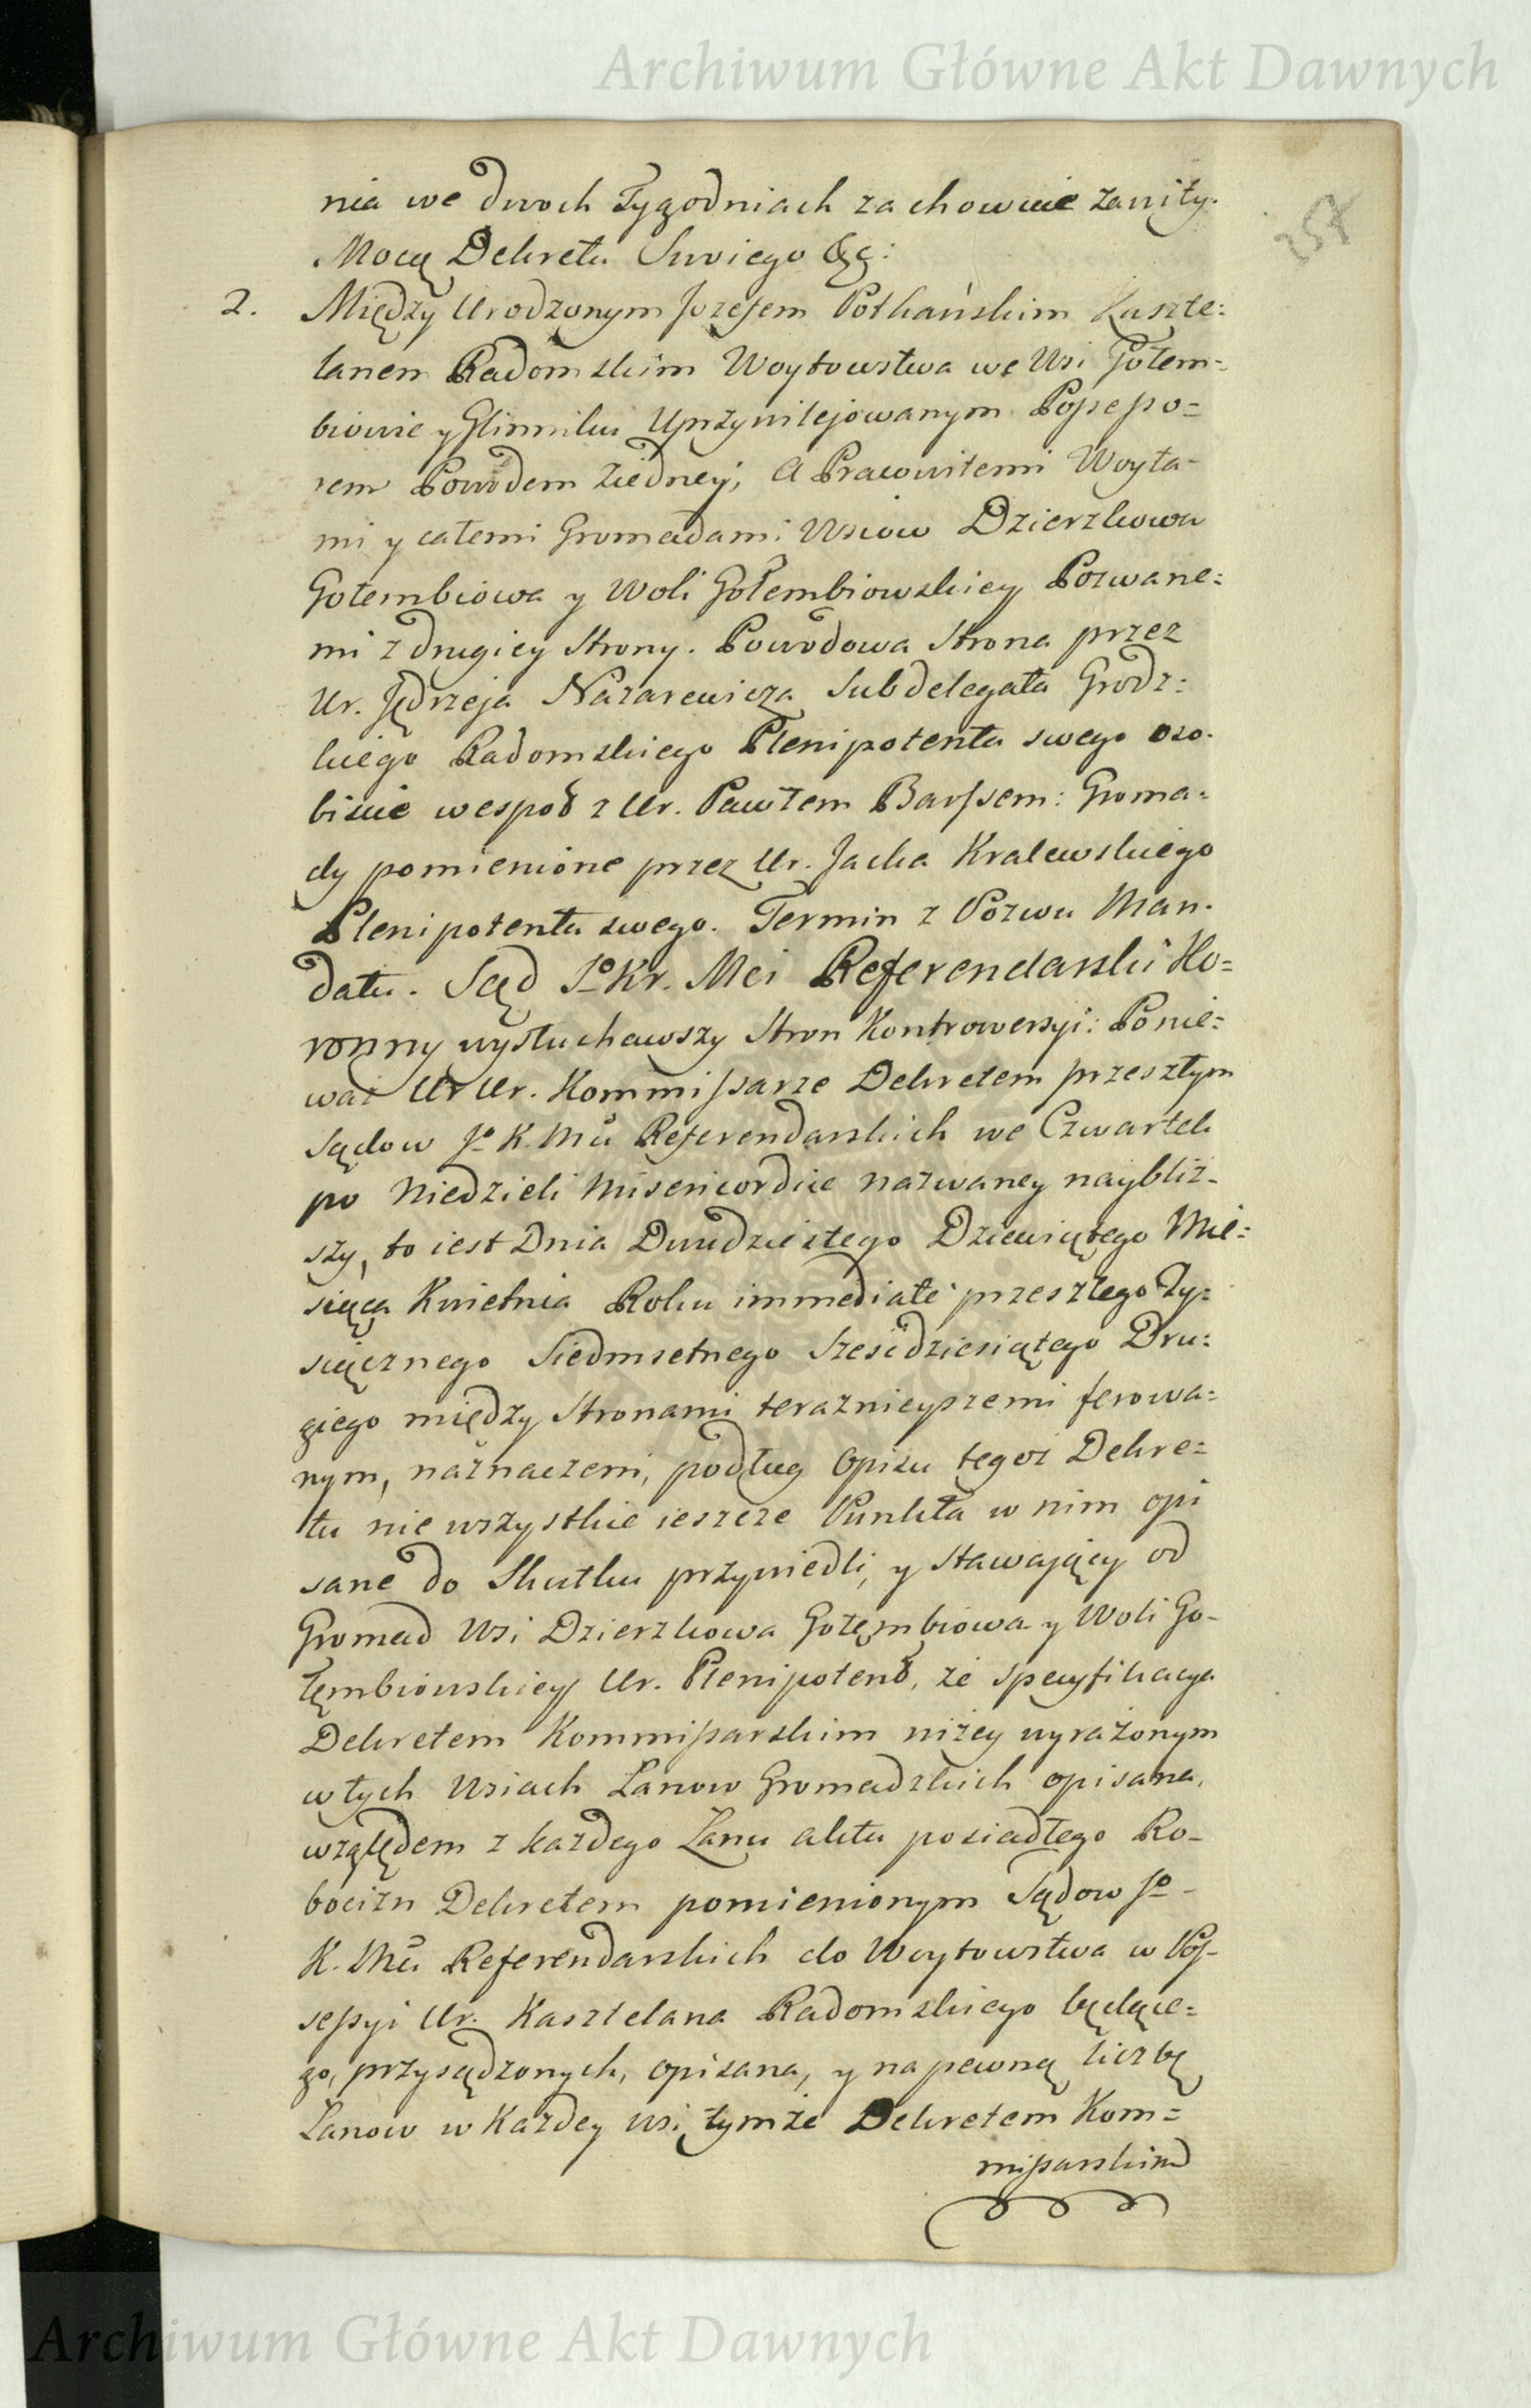 Archiwum Główne Akt Dawnych
257
nia we dwoch Tygodniach zachowuie zawity.
Mocą Dekretu Swoiego &c:
2. Między Urodzonym Jozefem Potkańskim Kaszte=
lanem Radomskim Woytowstwa we Wsi Gołem=
biowie y Glinniku Uprzywilejowanym Possesso=
rem Powodem z iedney; a Pracowitemi Woyta-
mi y całemi Gromadami Wsiow Dzierzkowa
Gołembiowa y Woli Gołembiowskiey Pozwane=
mi z drugiey Strony. Powodowa Strona przez
Ur. Jędrzeja Nazarewicza Subdelegata Grodz=
kiego Radomskiego Plenipotenta swego oso-
biscie wespoł z Ur. Pawłem Barssem: Groma-
dy pomienione przez Ur. Jacka Kralewskiego
Plenipotenta swego. Termin z Pozwu Man-
datu. Sąd Jo Kr. Mci Referendarski Ko=
ronny wysłuchawszy Stron Kontrowersyi: Ponie=
waż Ur Ur. Kommissarze Dekretem przeszłym
Sądow Jo K. Mci Referendarskich we Czwartek
po Niedzieli Misericordiae nazwaney naybliż-
szy, to iest Dnia Dwudziestego Dziewiątego Mie=
siąca Kwietnia Roku immediate przeszłego Ty=
siącznego Siedmsetnego Szescdziesiątego Dru=
giego między Stronami teraznieyszemi ferowa=
nym, naznaczeni, podług Opisu tegoż Dekre=
tu nie wszystkie ieszcze Punkta w nim opi
sane do Skutku przywiedli, y Stawaiący od
Gromad Wsi Dzierzkowa Gołęmbiowa y Woli Go-
łęmbiowskiey Ur. Plenipotent, że specyfikacya
Dekretem Kommissarskim niżey wyrażonym
w tych Wsiach Łanow Gromadzkich opisana,
względem z każdego Łanu aktu posiadłego Ro-
bocizn Dekretem pomienionym Sądow Jo -
K. Mci Referendarskich do Woytowstwa w Pos-
sessyi Ur. Kasztelana Radomskiego będące=
go, przysądzonych, opisana, y na pewną liczbę
Łanow w Każdey Wsi tymże Dekretem Kom=
missarskim
Archiwum Główne Akt Dawnych